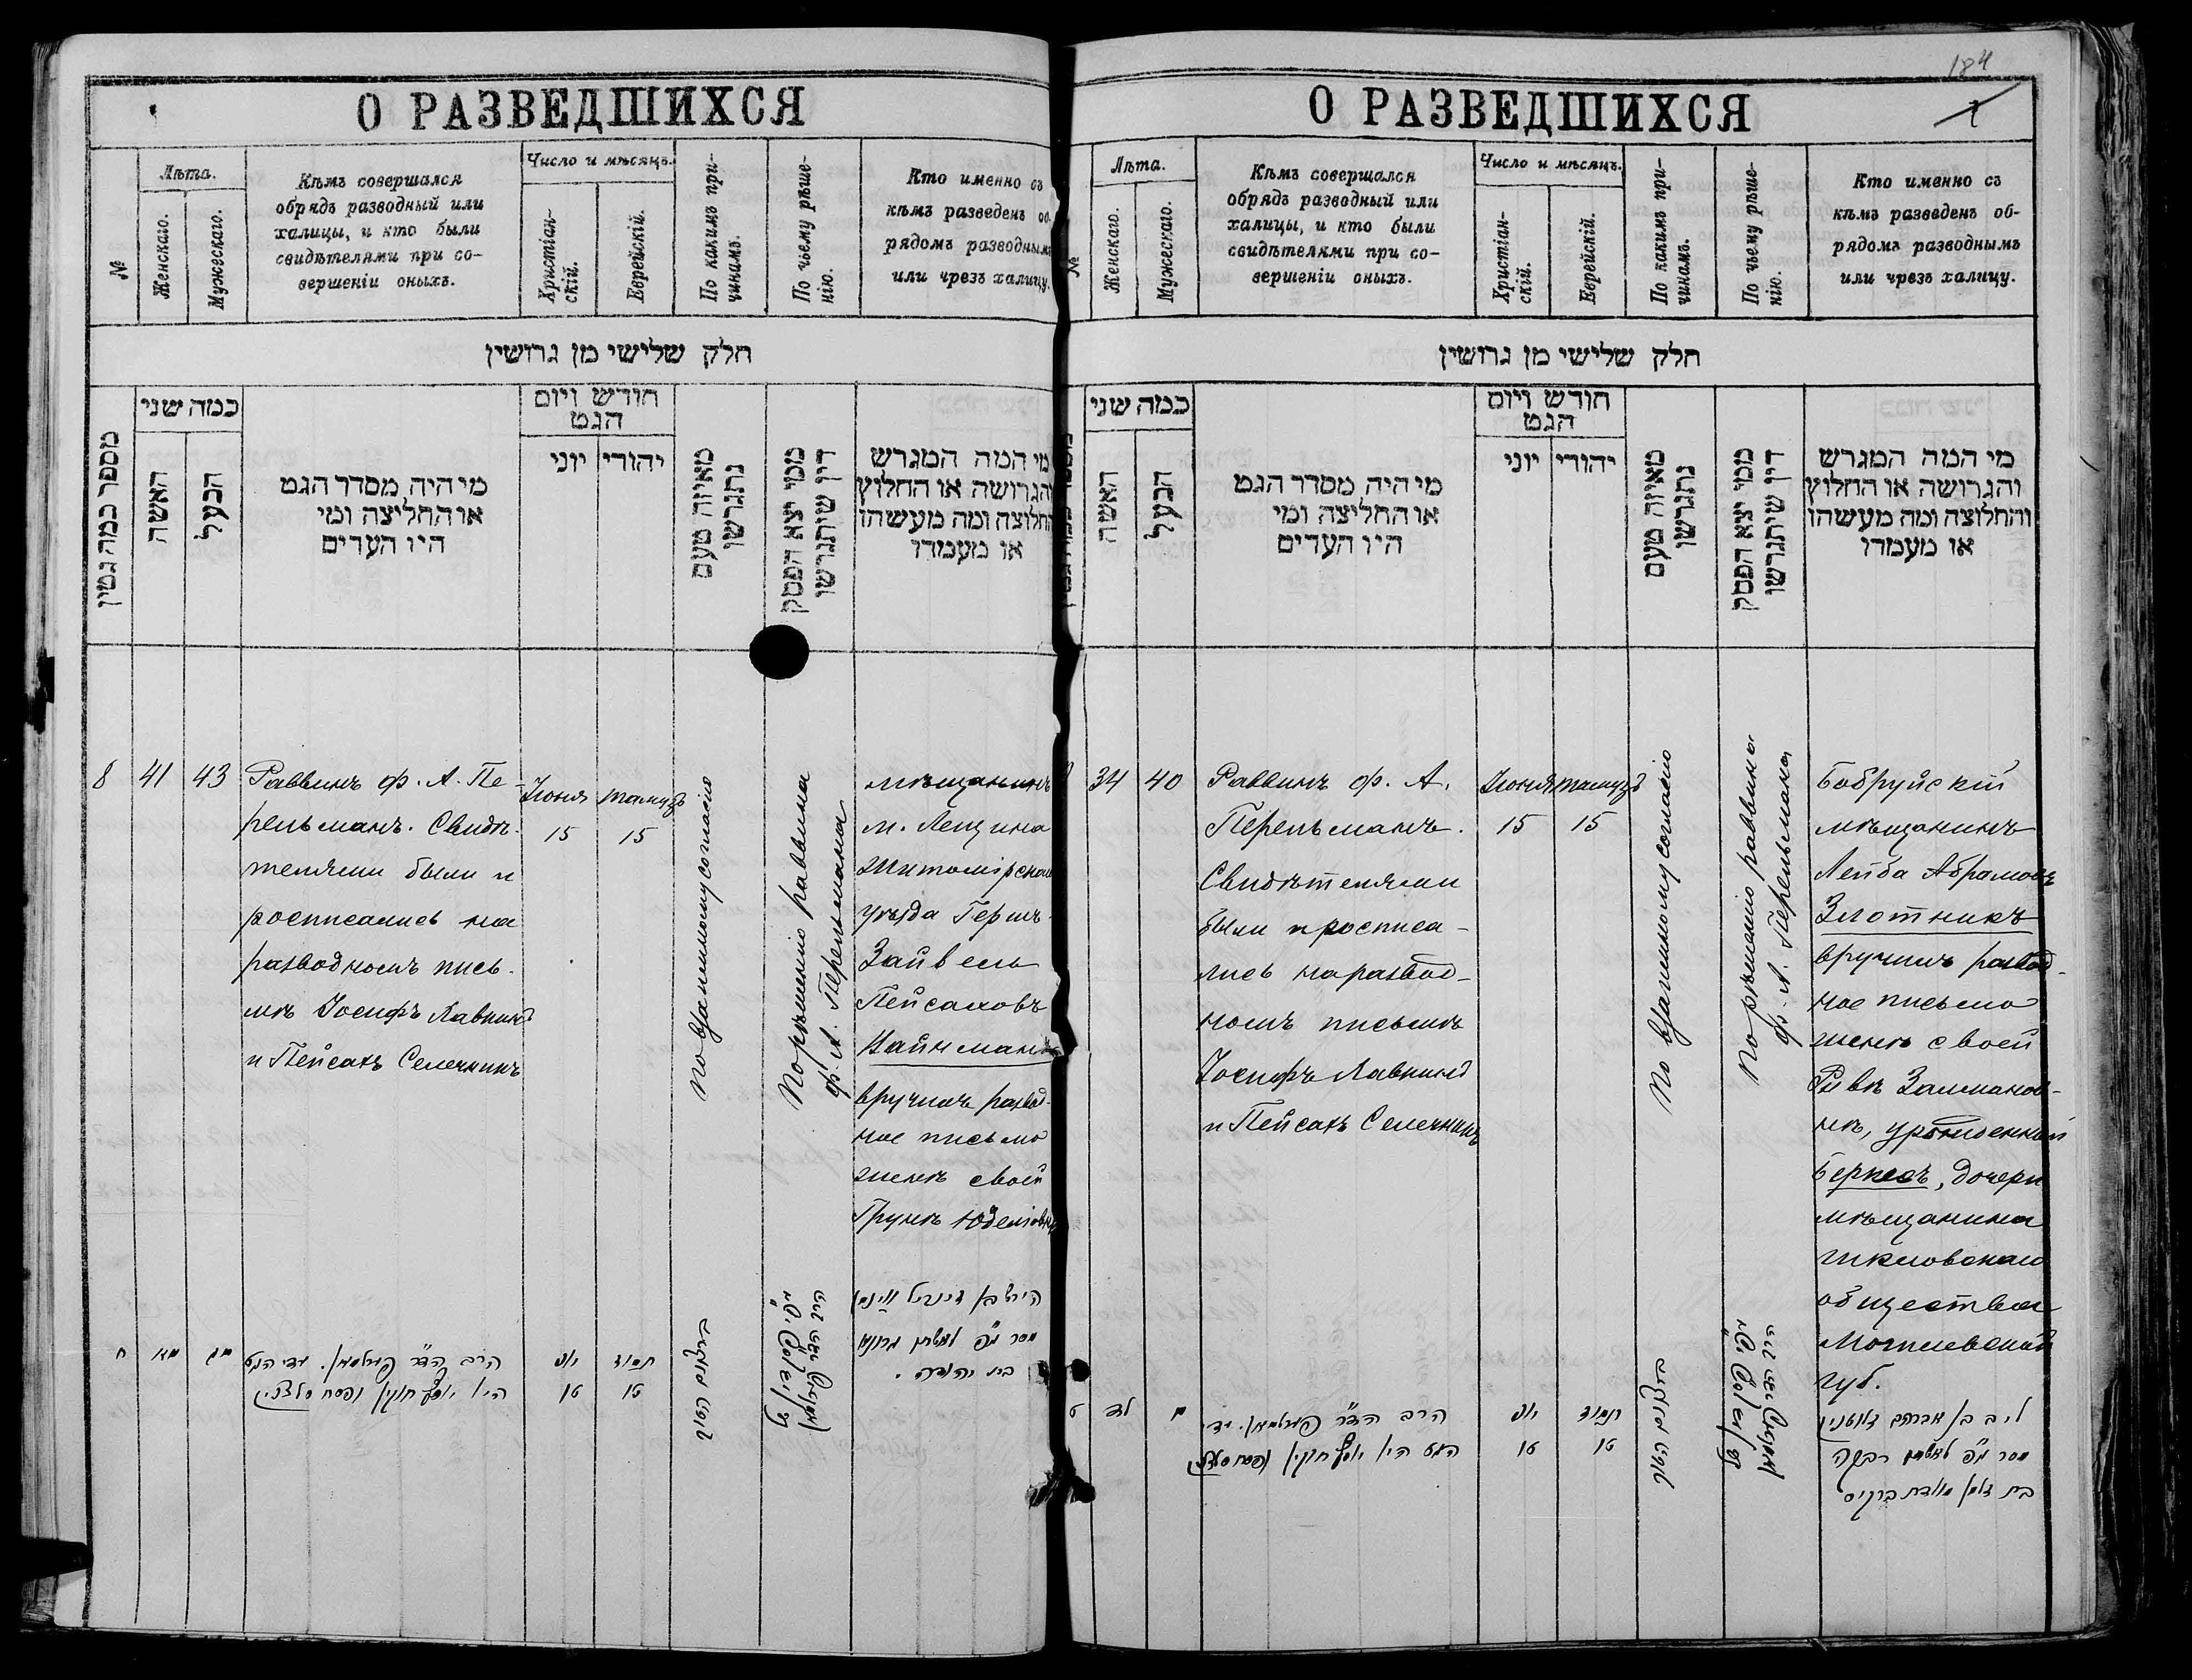 О РАЗВЕДШИХСЯ
№
Лѣта.
Женскаго.
Мужескаго.
Кѣмъ совершался
обрядъ разводный или
халицы, и кто были
свидѣтелями при со-
вершеніи оныхъ.
Число и мѣсяцъ.
Христіан-
скій.
Еврейскій.
По какимъ при-
чинамъ.
По чьему рѣше-
нію.
Кто именно съ
кѣмъ разведенъ об-
рядомъ разводнымъ
или чрезъ халицу.
חלק שלישי מן גרושין
מספר כמה גטין
כמה שני
האשה
הבעל
מי היה מסדר הגט
או החליצה ומי
היו העדים
חודש ויום
הגט
יוני
יהודי
מאיזה טעם
נתגרשו
ממי יצא הפסק
דין שיתגרשו
מי המה המגרש
והגרושה או החלוץ
והחלוצה ומה מעשהו
או מעמדו
8
41
43
Раввинъ Ф. А. Пе-
рельманъ. Свидѣ-
телями были и
росписались на
разводномъ пись-
мѣ Іосифъ Лавкинъ
и Пейсахъ Селечникъ
Іюня
15
Тамузъ
15
По взаимному согласію
По рѣшенію раввина
Ф. А. Перельмана
мѣщанинъ
м. Лещина
Житомірскаго
уѣзда Герш-
Зайвель
Пейсаховъ
Вайнманъ
вручилъ развод-
ное письмо
женѣ своей
Грунѣ Юделіовнѣ
ח
מא
מג
הרב פערלמאן. עדי הגט
היו יוסף ופסח
יוני
טו
תמוז
טו
מסר לאשתו גרונא
בת יהודה.
184
О РАЗВЕДШИХСЯ
№
Лѣта.
Женскаго.
Мужескаго.
Кѣмъ совершался
обрядъ разводный или
халицы, и кто были
свидѣтелями при со-
вершеніи оныхъ.
Число и мѣсяцъ.
Христіан-
скій.
Еврейскій.
По какимъ при-
чинамъ.
По чьему рѣше-
нію.
Кто именно съ
кѣмъ разведенъ об-
рядомъ разводнымъ
или чрезъ халицу.
חלק שלישי מן גרושין
כמה שני
האשה
הבעל
מי היה מסדר הגט
או החליצה ומי
היו העדים
חודש ויום
הגט
יוני
יהודי
מאיזה טעם
נתגרשו
ממי יצא הפסק
דין שיתגרשו
מי המה המגרש
והגרושה או החלוץ
והחלוצה ומה מעשהו
או מעמדו
34
40
Раввинъ Ф. А.
Перельманъ.
Свидѣтелями
были и росписа-
лись на развод-
номъ письмѣ
Іосифъ Лавкинъ
и Пейсахъ Селечникъ
Іюня
15
Тамузъ
15
По взаимному согласію
По рѣшенію раввина
Ф. А. Перельмана
Бобруйскій
мѣщанинъ
Лейба Абрамовъ
Злотникъ
вручилъ развод-
ное письмо
женѣ своей
Ривѣ Залманов-
нѣ, урожденной
Беркесъ, дочери
мѣщанина
Шкловскаго
общества
Могилевской
губ.
ט
לד
מ
הרב פערלמאן. עדי
הגט היו יוסף ופסח
יוני
טו
תמוז
טו
ליב בן אברהם זלאטניק
מסר לאשתו רבקה
בת זלמן מולדת ברקיס